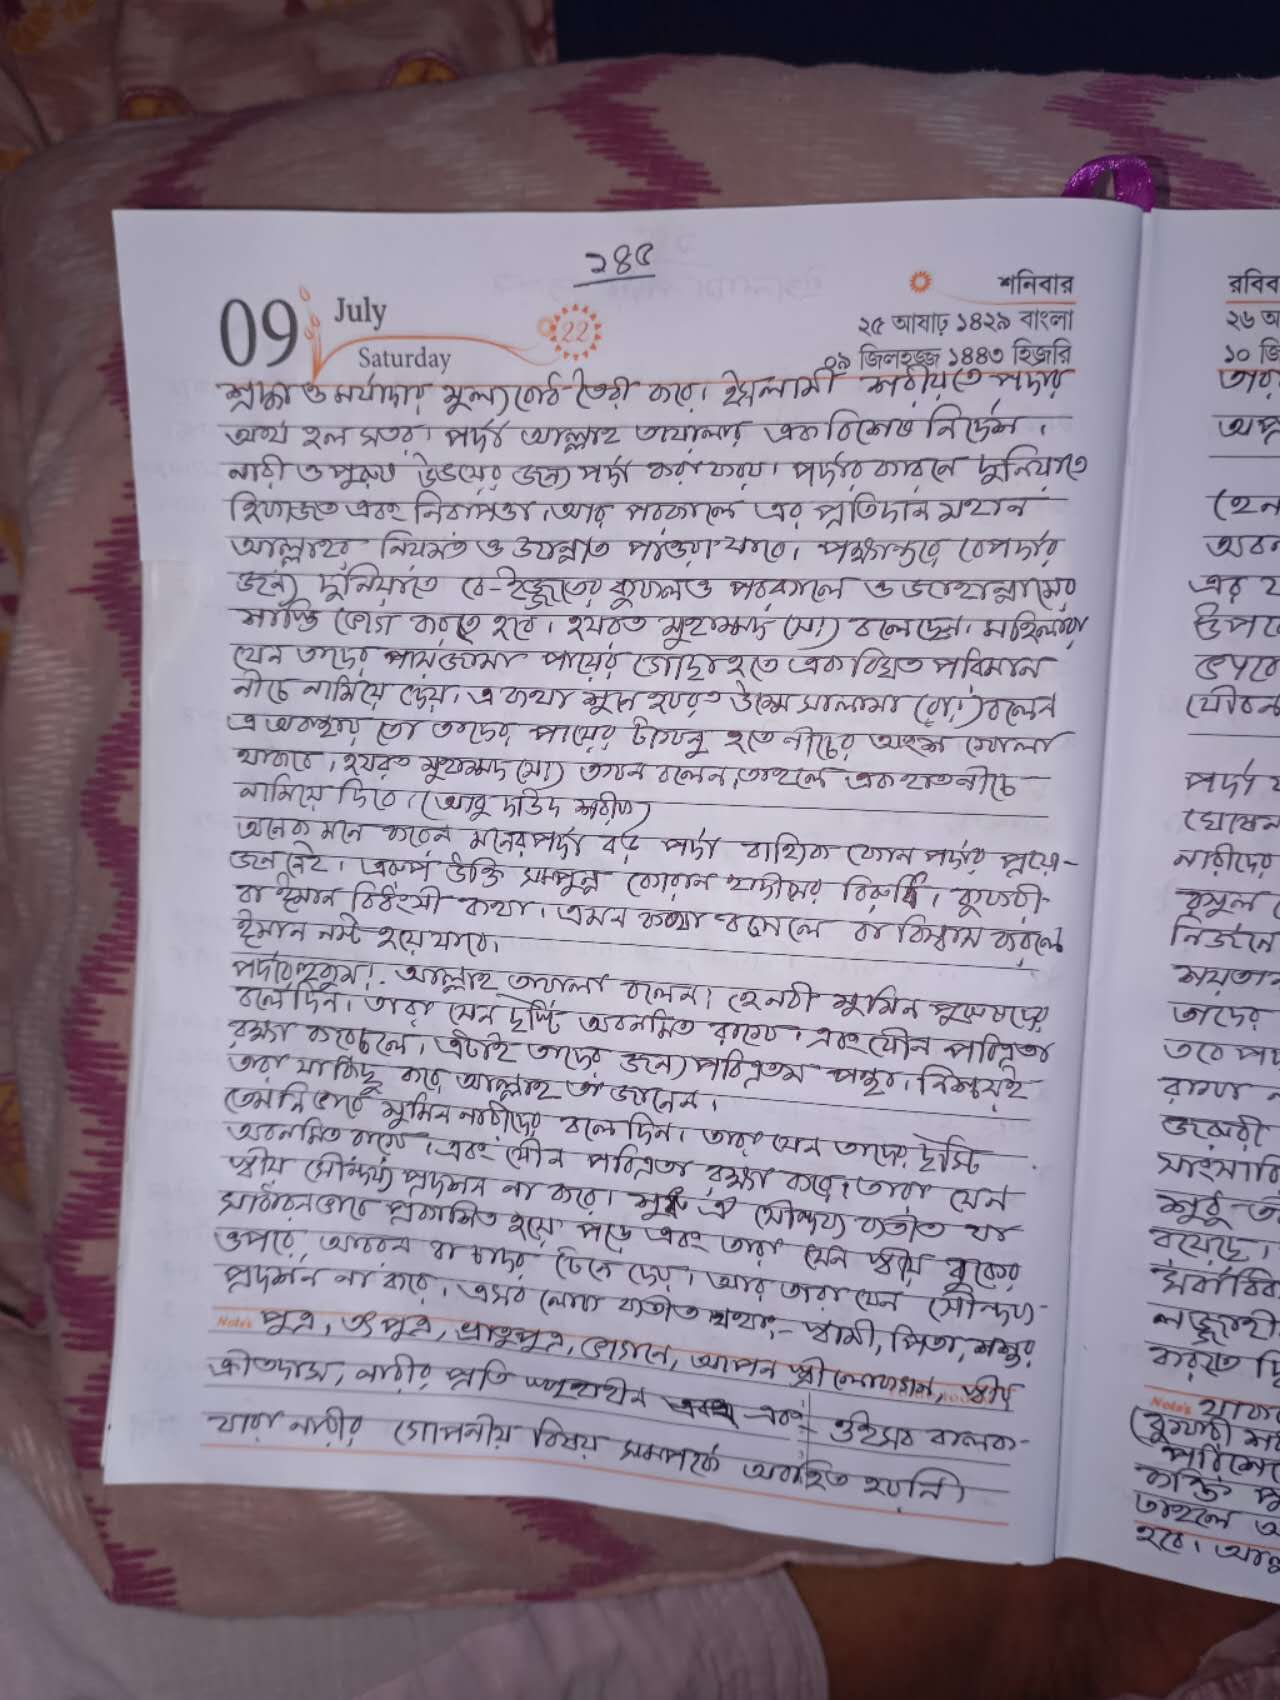 ২৪৫
09 July
Saturday
22
শনিবার
২৫ আষাঢ় ১৪২৯ বাংলা
০৯ জিলহজ্জ ১৪৪৩ হিজরি
শ্রদ্ধা ও মর্যাদার মূল্যবোধ তৈরী করে। ইসলামী শরীয়তে পর্দার
অর্থ হল সতর। পর্দা আল্লাহ তায়ালার এক বিশেষ নির্দেশ।
নারী ও পুরুষ উভয়ের জন্য পর্দা করা ফরয। পর্দার কারনে দুনিয়াতে
হিফাজত এবং নিরাপত্তা, আর পরকালে এর প্রতিদান মহান
আল্লাহর নিয়ামত ও জান্নাত পাওয়া যাবে। পক্ষান্তরে বেপর্দার
জন্য দুনিয়াতে বে-ইজ্জতের কুফল ও পরকালে ও জাহান্নামের
শাস্তি ভোগ করতে হবে। হযরত মুহাম্মদ (সা) বলেছেন। মহিলারা
যেন তাদের পায়জামা পায়ের গোছা হতে এক বিঘত পরিমান
নীচে নামিয়ে দেয়। এ কথা শুনে হযরত উম্মে সালামা (রাঃ) বলেন
এ অবস্থায় তো তাদের পায়ের টাখনু হতে নীচের অংশ খোলা
থাকবে। হযরত মুহাম্মদ (সা) তখন বলেন, তাহলে এক হাত নীচে
নামিয়ে দিবে। (আবু দাউদ শরীফ)
অনেক মনে করেন মনের পর্দা বড় পর্দা বাহ্যিক কোন পর্দার প্রয়ো-
জন নেই। এরূপ উক্তি সম্পুন্ন কোরান হাদীসের বিরুধি। কুফরী
বা ঈমান বিধ্বংসী কথা। এমন কথা বললে বা বিশ্বাস করলে
ঈমান নস্ট হয়ে যাবে।
পর্দার হুকুম: আল্লাহ তায়ালা বলেন। হে নবী মুমিন পুরুষদের
বলে দিন। তারা যেন দৃষ্টি অবনমিত রাখে। এবং যৌন পবিত্রতা
রক্ষা করে চলে। এটাই তাদের জন্য পবিত্রতম পন্থা। নিশ্চয়ই
তারা যা কিছু করে আল্লাহ তা জানেন।
তেমনি ভাবে মুমিন নারীদের বলে দিন। তারা যেন তাদের দৃষ্টি
অবনমিত রাখে। এবং যৌন পবিত্রতা রক্ষা করে। তারা যেন
স্বীয় সৌন্দর্য প্রদর্শন না করে। শুধু ঐ সৌন্দর্য ব্যতীত যা
সাধারনভাবে প্রকাশিত হয়ে পড়ে এবং তারা যেন স্বীয় বুকের
ওপরে, আবরন বা চাদর টেনে দেয়। আর তারা যেন সৌন্দর্য-
প্রদর্শন না করে। এসব লোক ব্যতীত যথা:- স্বামী, পিতা, শশুর
Note's পুত্র, তৎপুত্র, ভ্রাতুপুত্র, ভাগনে, আপন স্ত্রীলোকগন, স্বীয়
ক্রীতদাস, নারীর প্রতি স্পৃহাহীন এবং ওইসব বালক-
যারা নারীর গোপনীয় বিষয় সম্পর্কে অবহিত হয়নি।
রবিব
২৬ আ
১০ জি
তার
(হেন
এর
উপরে
যৌবন
পর্দা
নারীদের
রসুল
নির্জনে
শয়তান
তাদের
তবে পর্দ
রাখা
জরুরী
সাংসারি
শুধু
রয়েছে।
করতে
Note's
তাহলে
হবে।